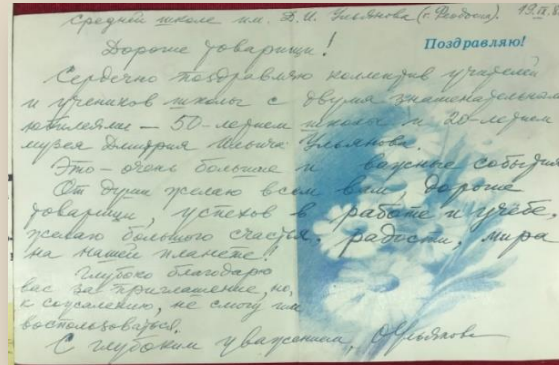 средней школе им. Д. И. Ульянова (г. Феодосия).
Дорогие товарищи!
Поздравляю!
Сердечно поздравляю коллектив учителей
и учеников школы с двумя знаменательными
юбилеями – 50-летием школы и 20-летием
музея Дмитрия Ильича Ульянова.
Это – очень большие и важные события
От души желаю всем вам, дорогие
товарищи, успехов в работе и учёбе,
желаю большого счастья, радости, мира
на нашей планете!
Глубоко благодарю
вас за приглашение, но,
к сожалению, не смогу им
воспользоваться.
С глубоким уважением, Ульянова